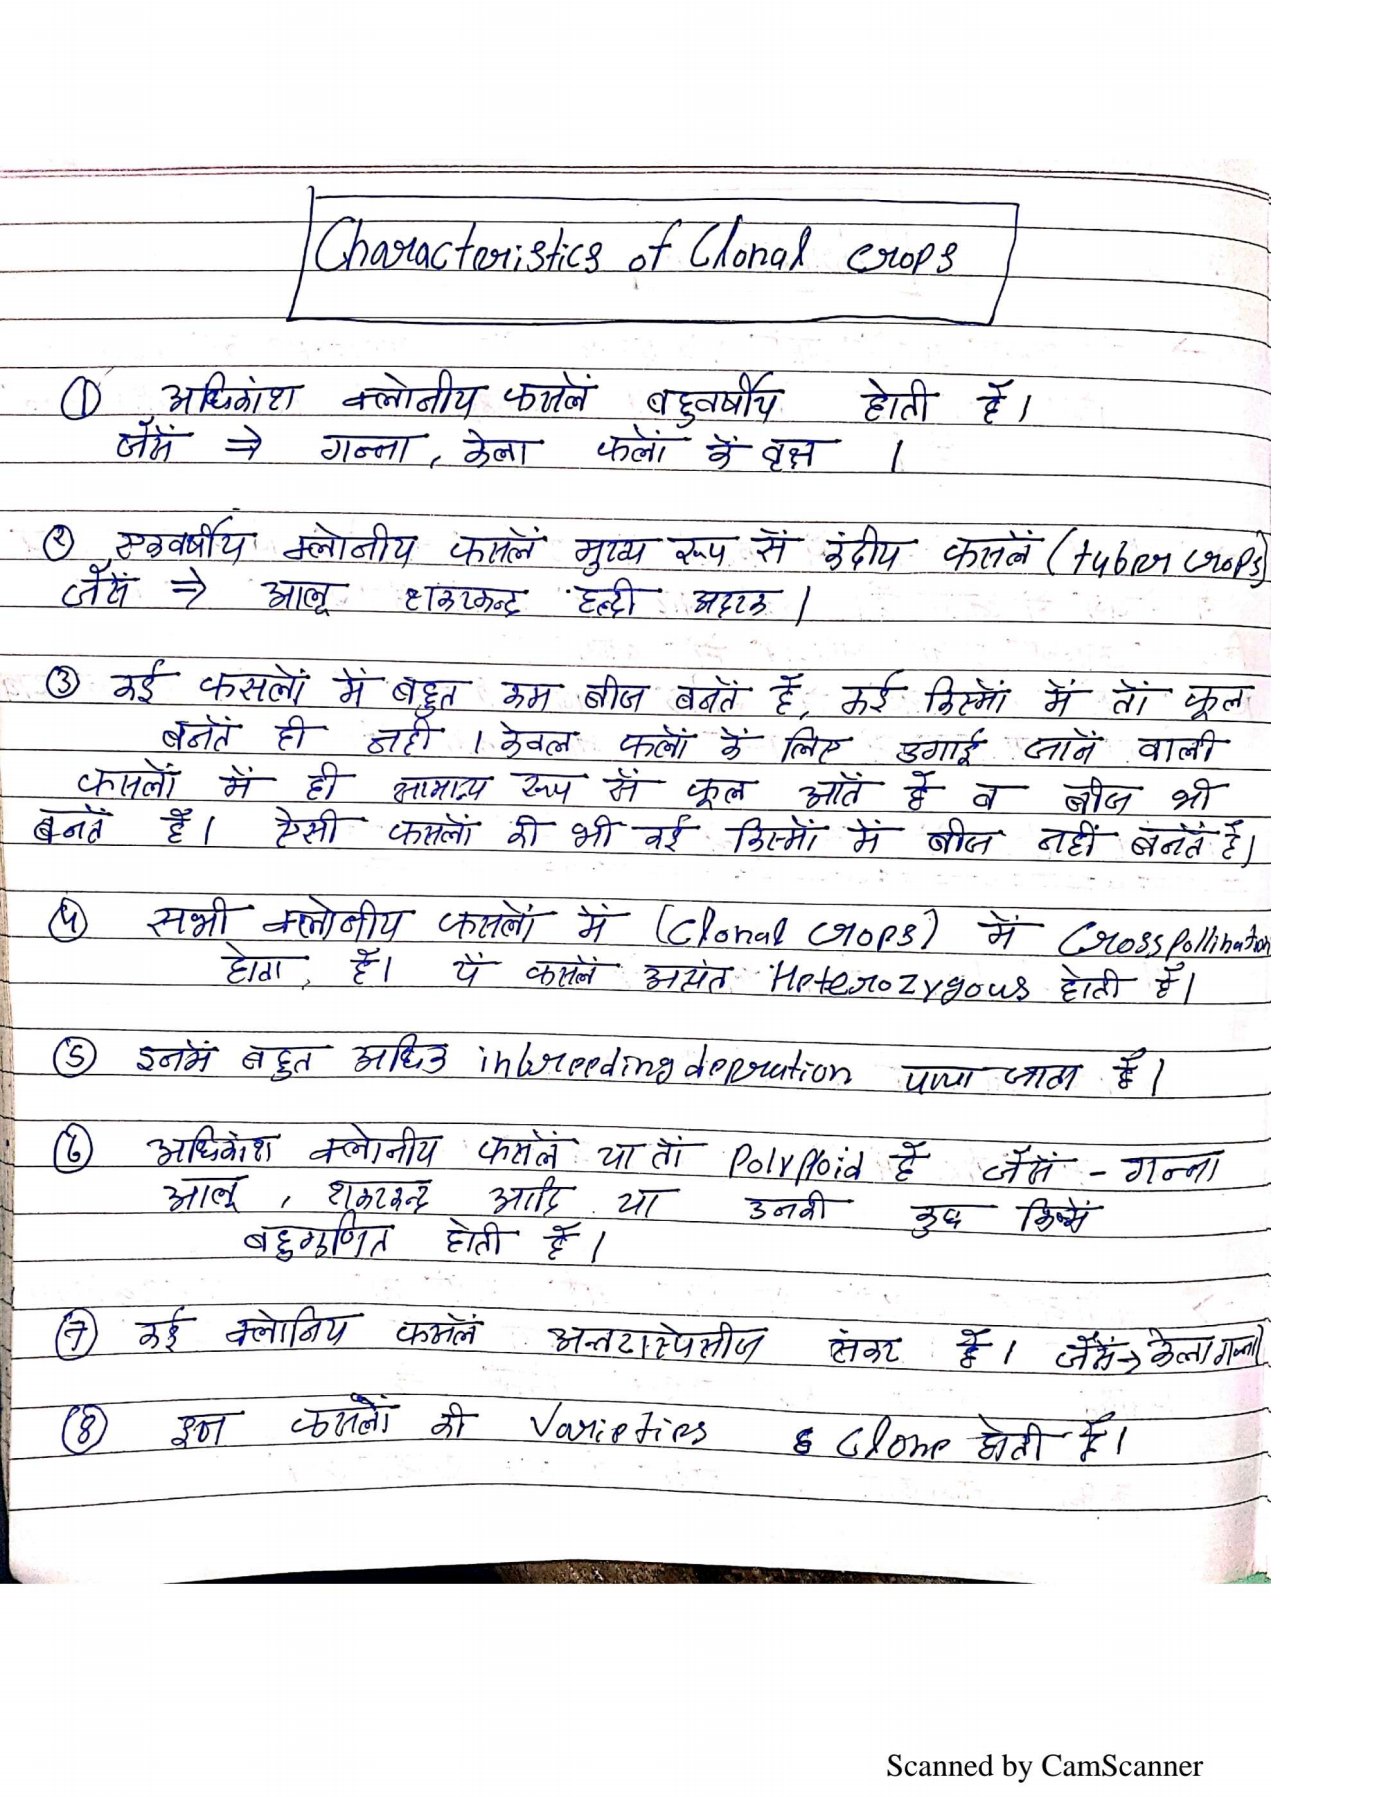 Characteristics of Clonal crops
① अधिकांश क्लोनीय फसलें बहुवर्षीय होती हैं।
जैसें ⇒ गन्ना, केला फलों कें वृक्ष ।
② एकवर्षीय क्लोनीय फसलें मुख्य रूप सें कंदीय फसलें (tuber crops)
जैसें ⇒ आलू शकरकन्द हल्दी अदरक ।
③ कई फसलों में बहुत कम बीज बनतें हैं, कई किस्मों में तों फूल
बनतें ही नहीं । केवल फलों कें लिए उगाई जानें वाली
फसलों में ही सामान्य रूप सें फूल आतें हैं व बीज भी
बनतें हैं। ऐसी फसलों की भी कई किस्मों में बीज नहीं बनतें हैं।
④ सभी क्लोनीय फसलों में (Clonal crops) में Cross pollination
होता, हैं। यें फसलें अत्यंत Heterozygous होती हैं।
⑤ इनमें बहुत अधिक inbreeding depration पाया जाता हैं।
⑥ अधिकांश क्लोनीय फसलें या तों Polyploid हैं जैसें - गन्ना
आलू, शकरकन्द आदि या उनकी कुछ किस्में
बहुगुणित होती हैं।
⑦ कई क्लोनिय फसलें अन्तरास्पेसीज संकर हैं। जैसें→ केला गन्ना
⑧ इन फसलों की Varieties Clone होती हैं।
Scanned by CamScanner